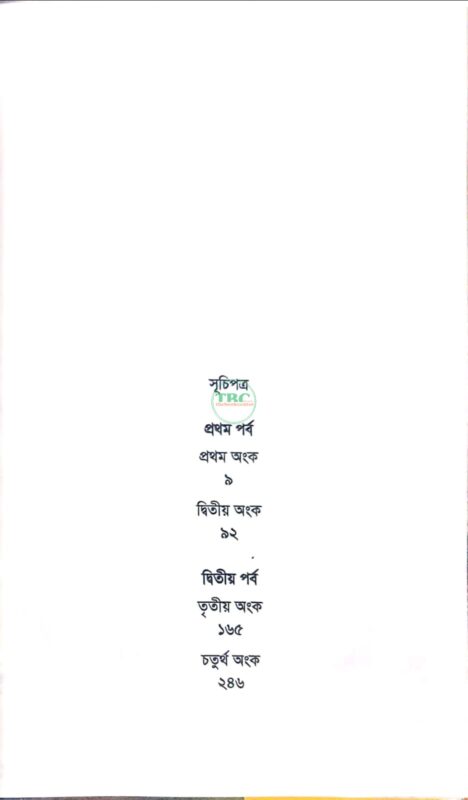 সূচিপত্র
TBC
প্রথম পর্ব
প্রথম অংক
৯
দ্বিতীয় অংক
৯২
দ্বিতীয় পর্ব
তৃতীয় অংক
১৬৫
চতুর্থ অংক
২৪৬